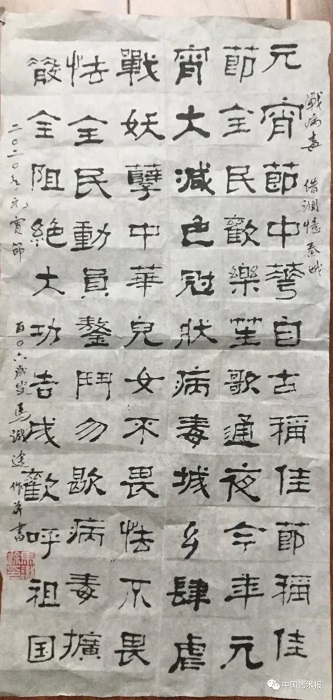 戰病毒 借調憶秦娥
元宵節中華自古稱佳節稱佳
節全民歡樂笙歌通夜今年元
宵大減色冠狀病毒城乡肆虐
戰妖孽中華兒女不畏怯不畏
怯全民動員鏖鬥勿歇病毒擴
散全阻絕大功告成歡呼祖国
二〇二〇年元宵節
百〇六歲叟馬識途作并書
中国艺术报